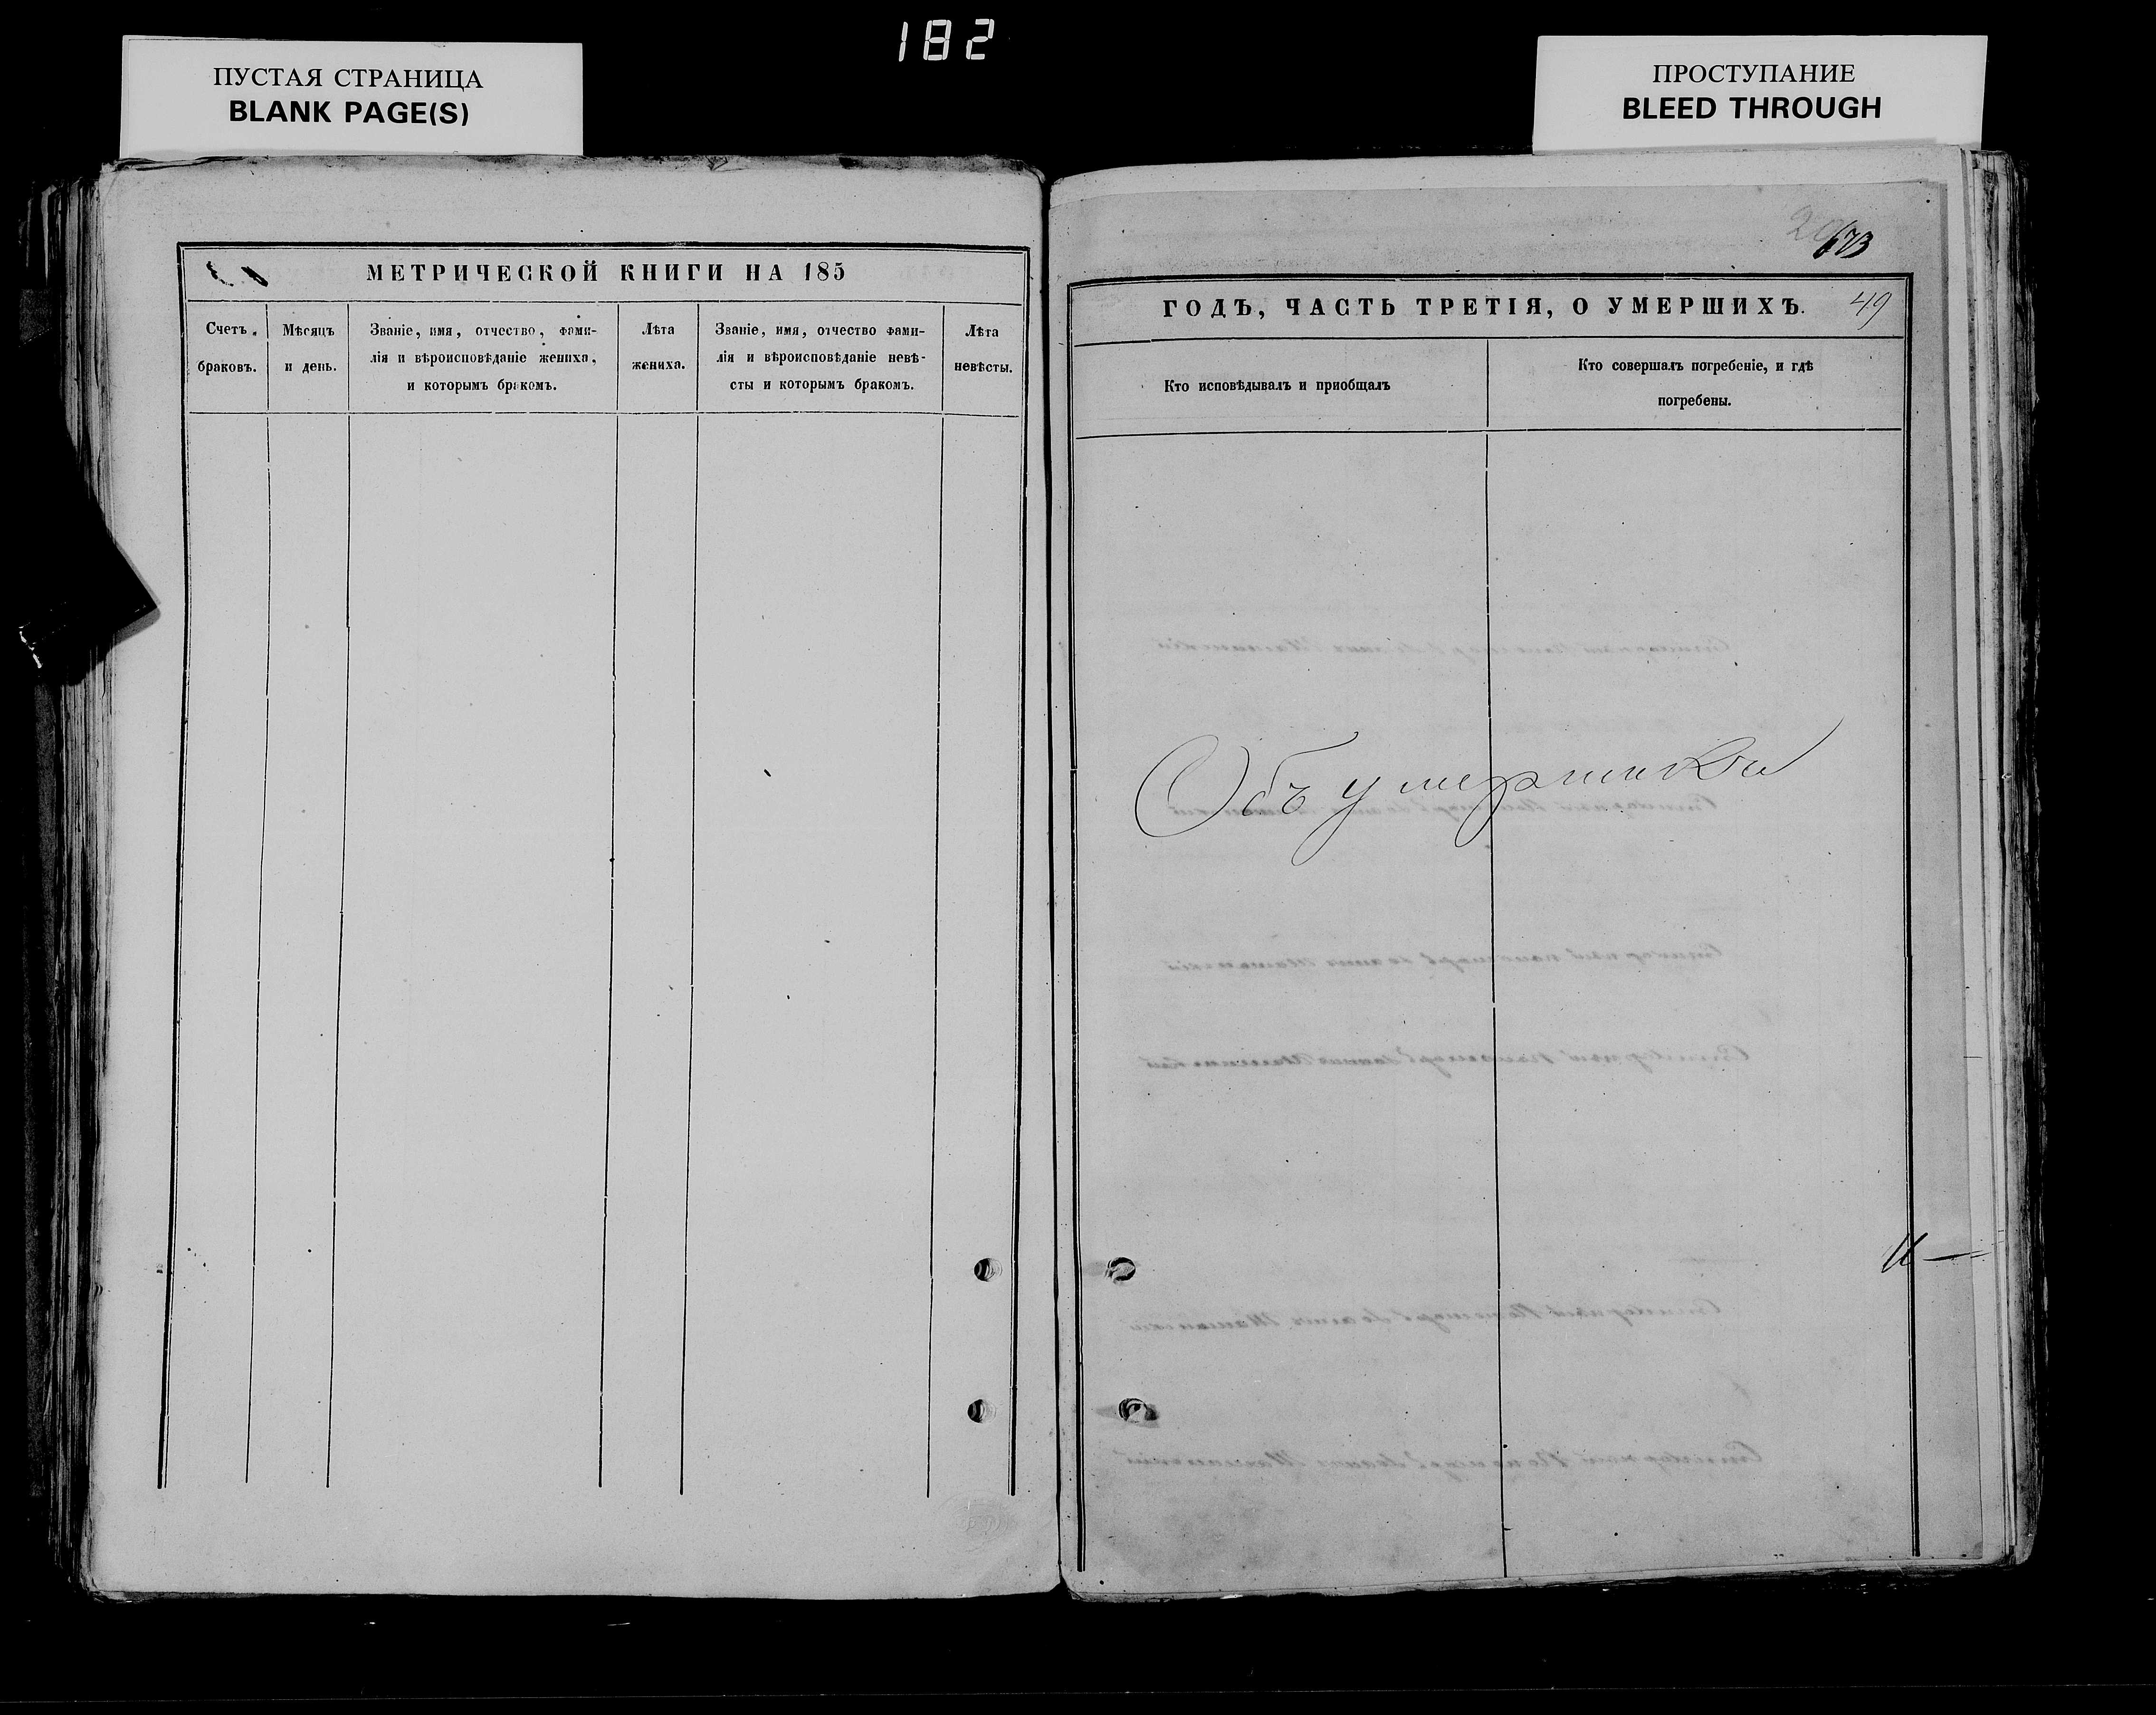 182
ПУСТАЯ СТРАНИЦА
BLANK PAGE(S)
ПРОСТУПАНИЕ
BLEED THROUGH
МЕТРИЧЕСКОЙ КНИГИ НА 185
Счетъ
браковъ.
Мѣсяцъ
и день.
Званіе, имя, отчество, фами-
лія и вѣроисповѣданіе жениха,
и которымъ бракомъ.
Лѣта
жениха.
Званіе, имя, отчество фами-
лія и вѣроисповѣданіе невѣ-
сты и которымъ бракомъ.
Лѣта
невѣсты.
673
ГОДЪ, ЧАСТЬ ТРЕТІЯ, О УМЕРШИХЪ.
49
Кто исповѣдывалъ и приобщалъ
Кто совершалъ погребеніе, и гдѣ
погребены.
Объ умершихъ